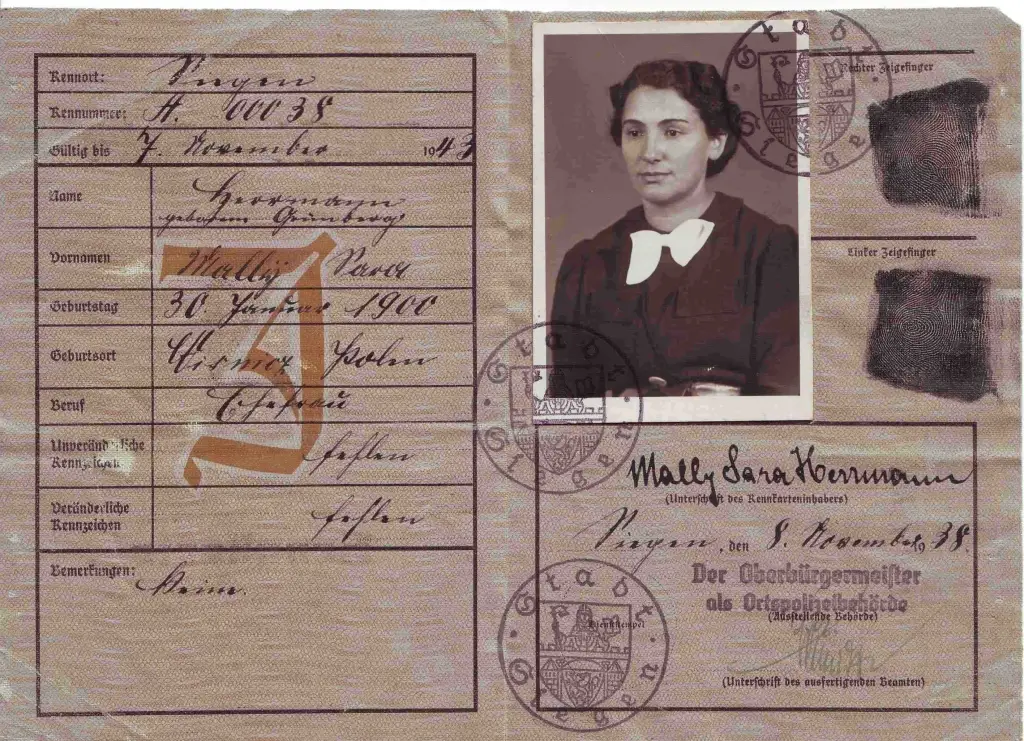 Kennort: Siegen
Kennummer: A. 00038
Gültig bis 7. November 1943
Name Herrmann
geborene Grünberg
Vornamen Mally Sara
Geburtstag 30. Januar 1900
Geburtsort Polen
Beruf Ehefrau
Unveränderliche Kennzeichen fehlen
Veränderliche Kennzeichen fehlen
Bemerkungen: Keine.
J
Rechter Zeigefinger
Linker Zeigefinger
Stadt Siegen
Stadt Siegen
Mally Sara Herrmann
(Unterschrift des Kennkarteninhabers)
Siegen, den 8. November 1938.
Der Oberbürgermeister
als Ortspolizeibehörde
(Ausstellende Behörde)
Stadt Siegen
Dienststempel
(Unterschrift des ausfertigenden Beamten)